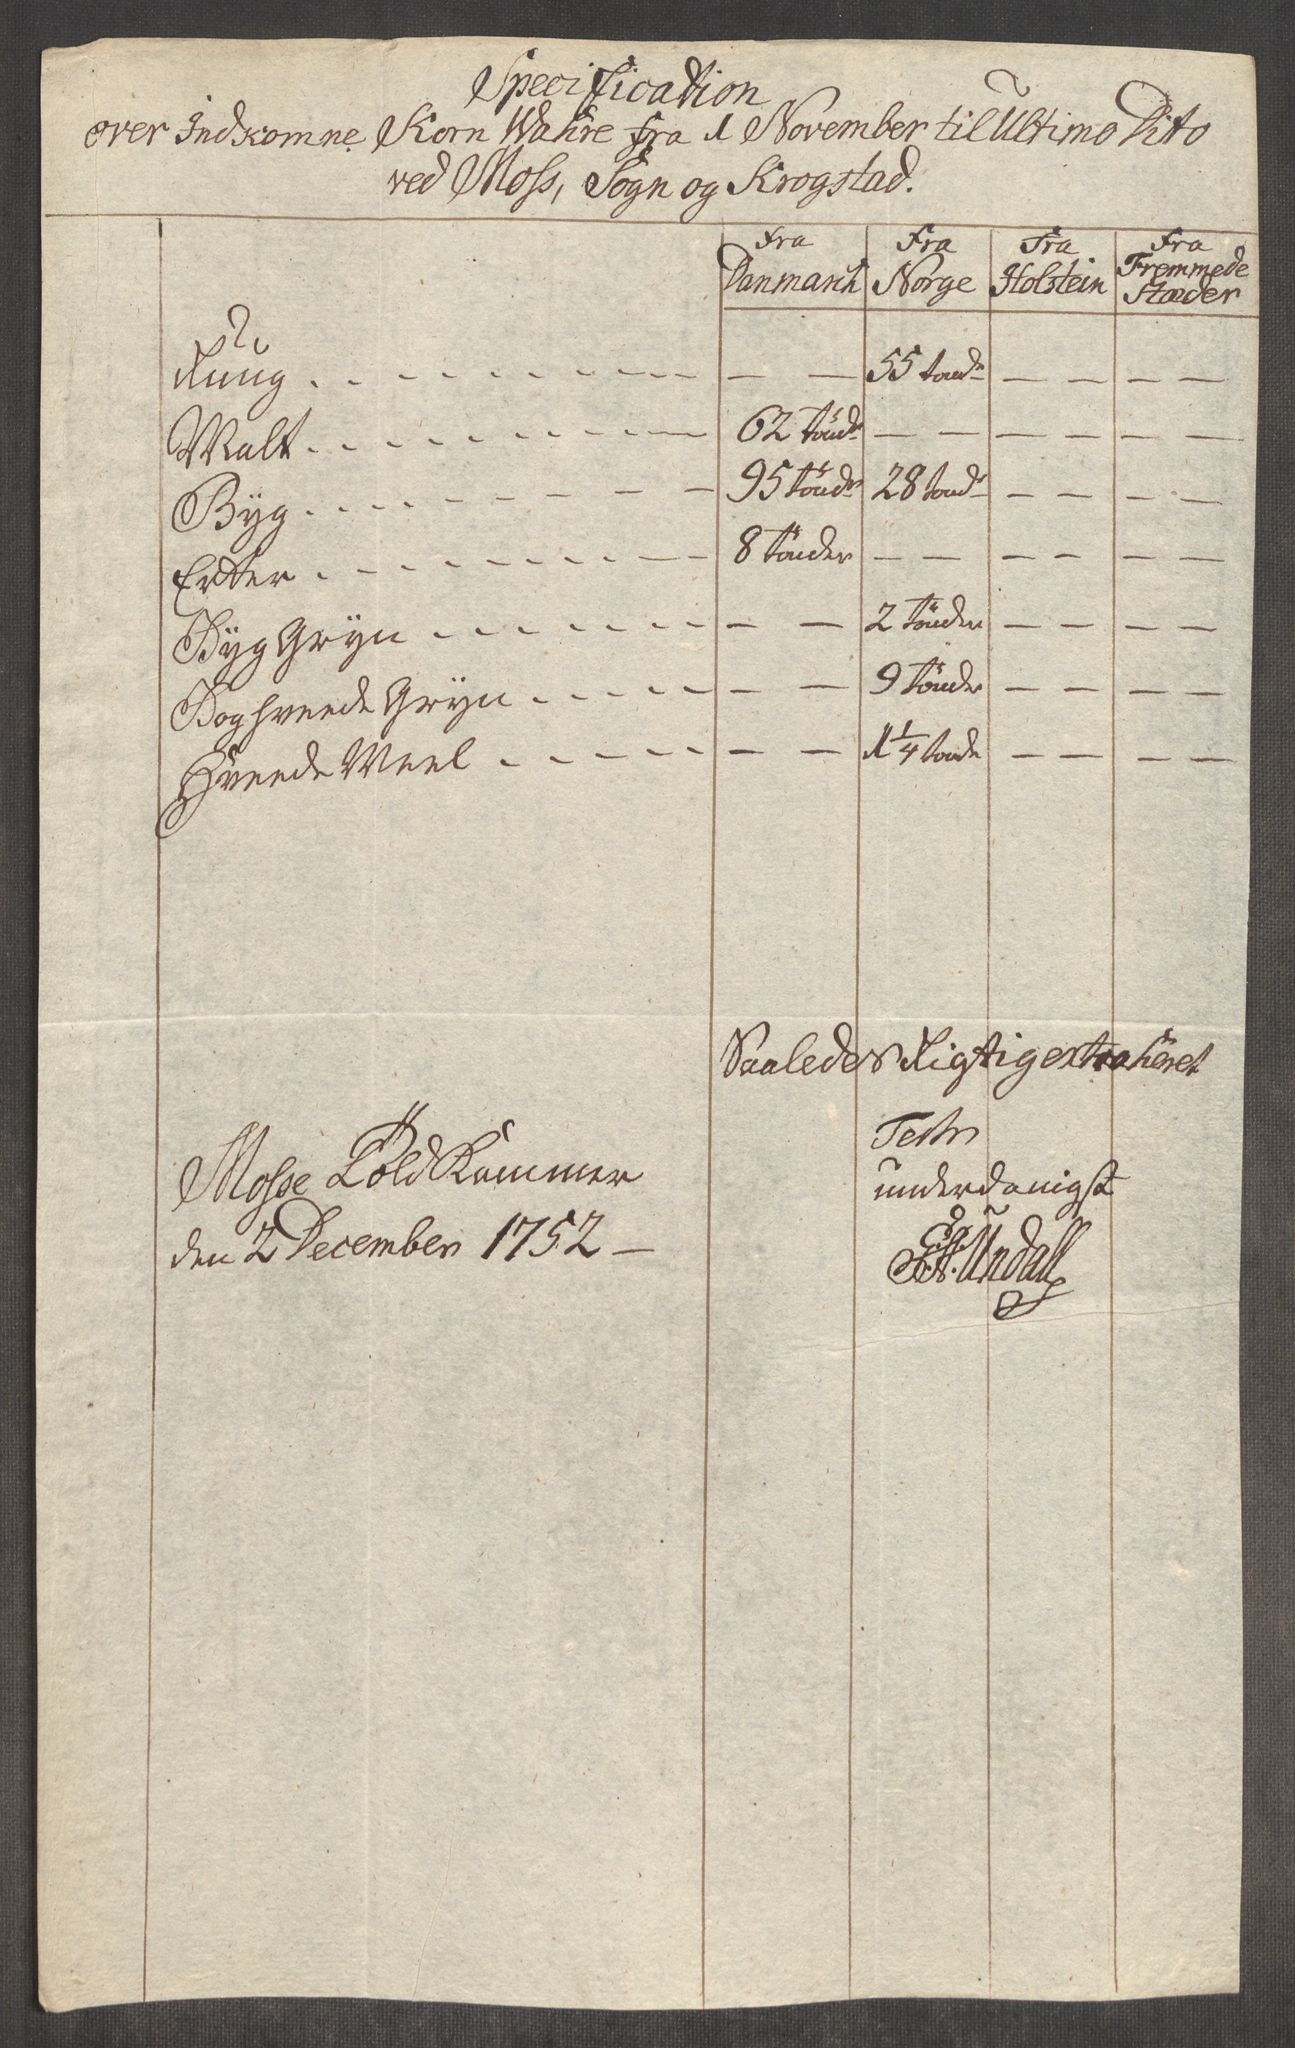 Specification
over Indkomne Korn Wahre fra 1 November til Ultimo Dito
ved Moss, Sogn og Krogstad.
fra Danmarck | Fra Norge | Fra Holstein | Fra Fremmede Stæder
Rüug . . . - - - - - - - - - — — 55 tønd — — — —
Malt . . - - - - - - - - - 62 tönd — — — — — —
Byg . . . . - - - - - 95 tönd 28 tønd — — — —
Erter . - - - - - - - - 8 tönder — — — — — —
Byg Gryn . - - - - - - - — — 2 tönder — — — —
Boghveede Gryn . - - - - - — — 9 tönder — — — —
Hveede Meel . - - - - - — — 1 1/4 tønde — — — —
Saaledes Rigtig extraheret
Test
Mosse Told Kammer
underdanigst
den 2 December 1752 —
Undall